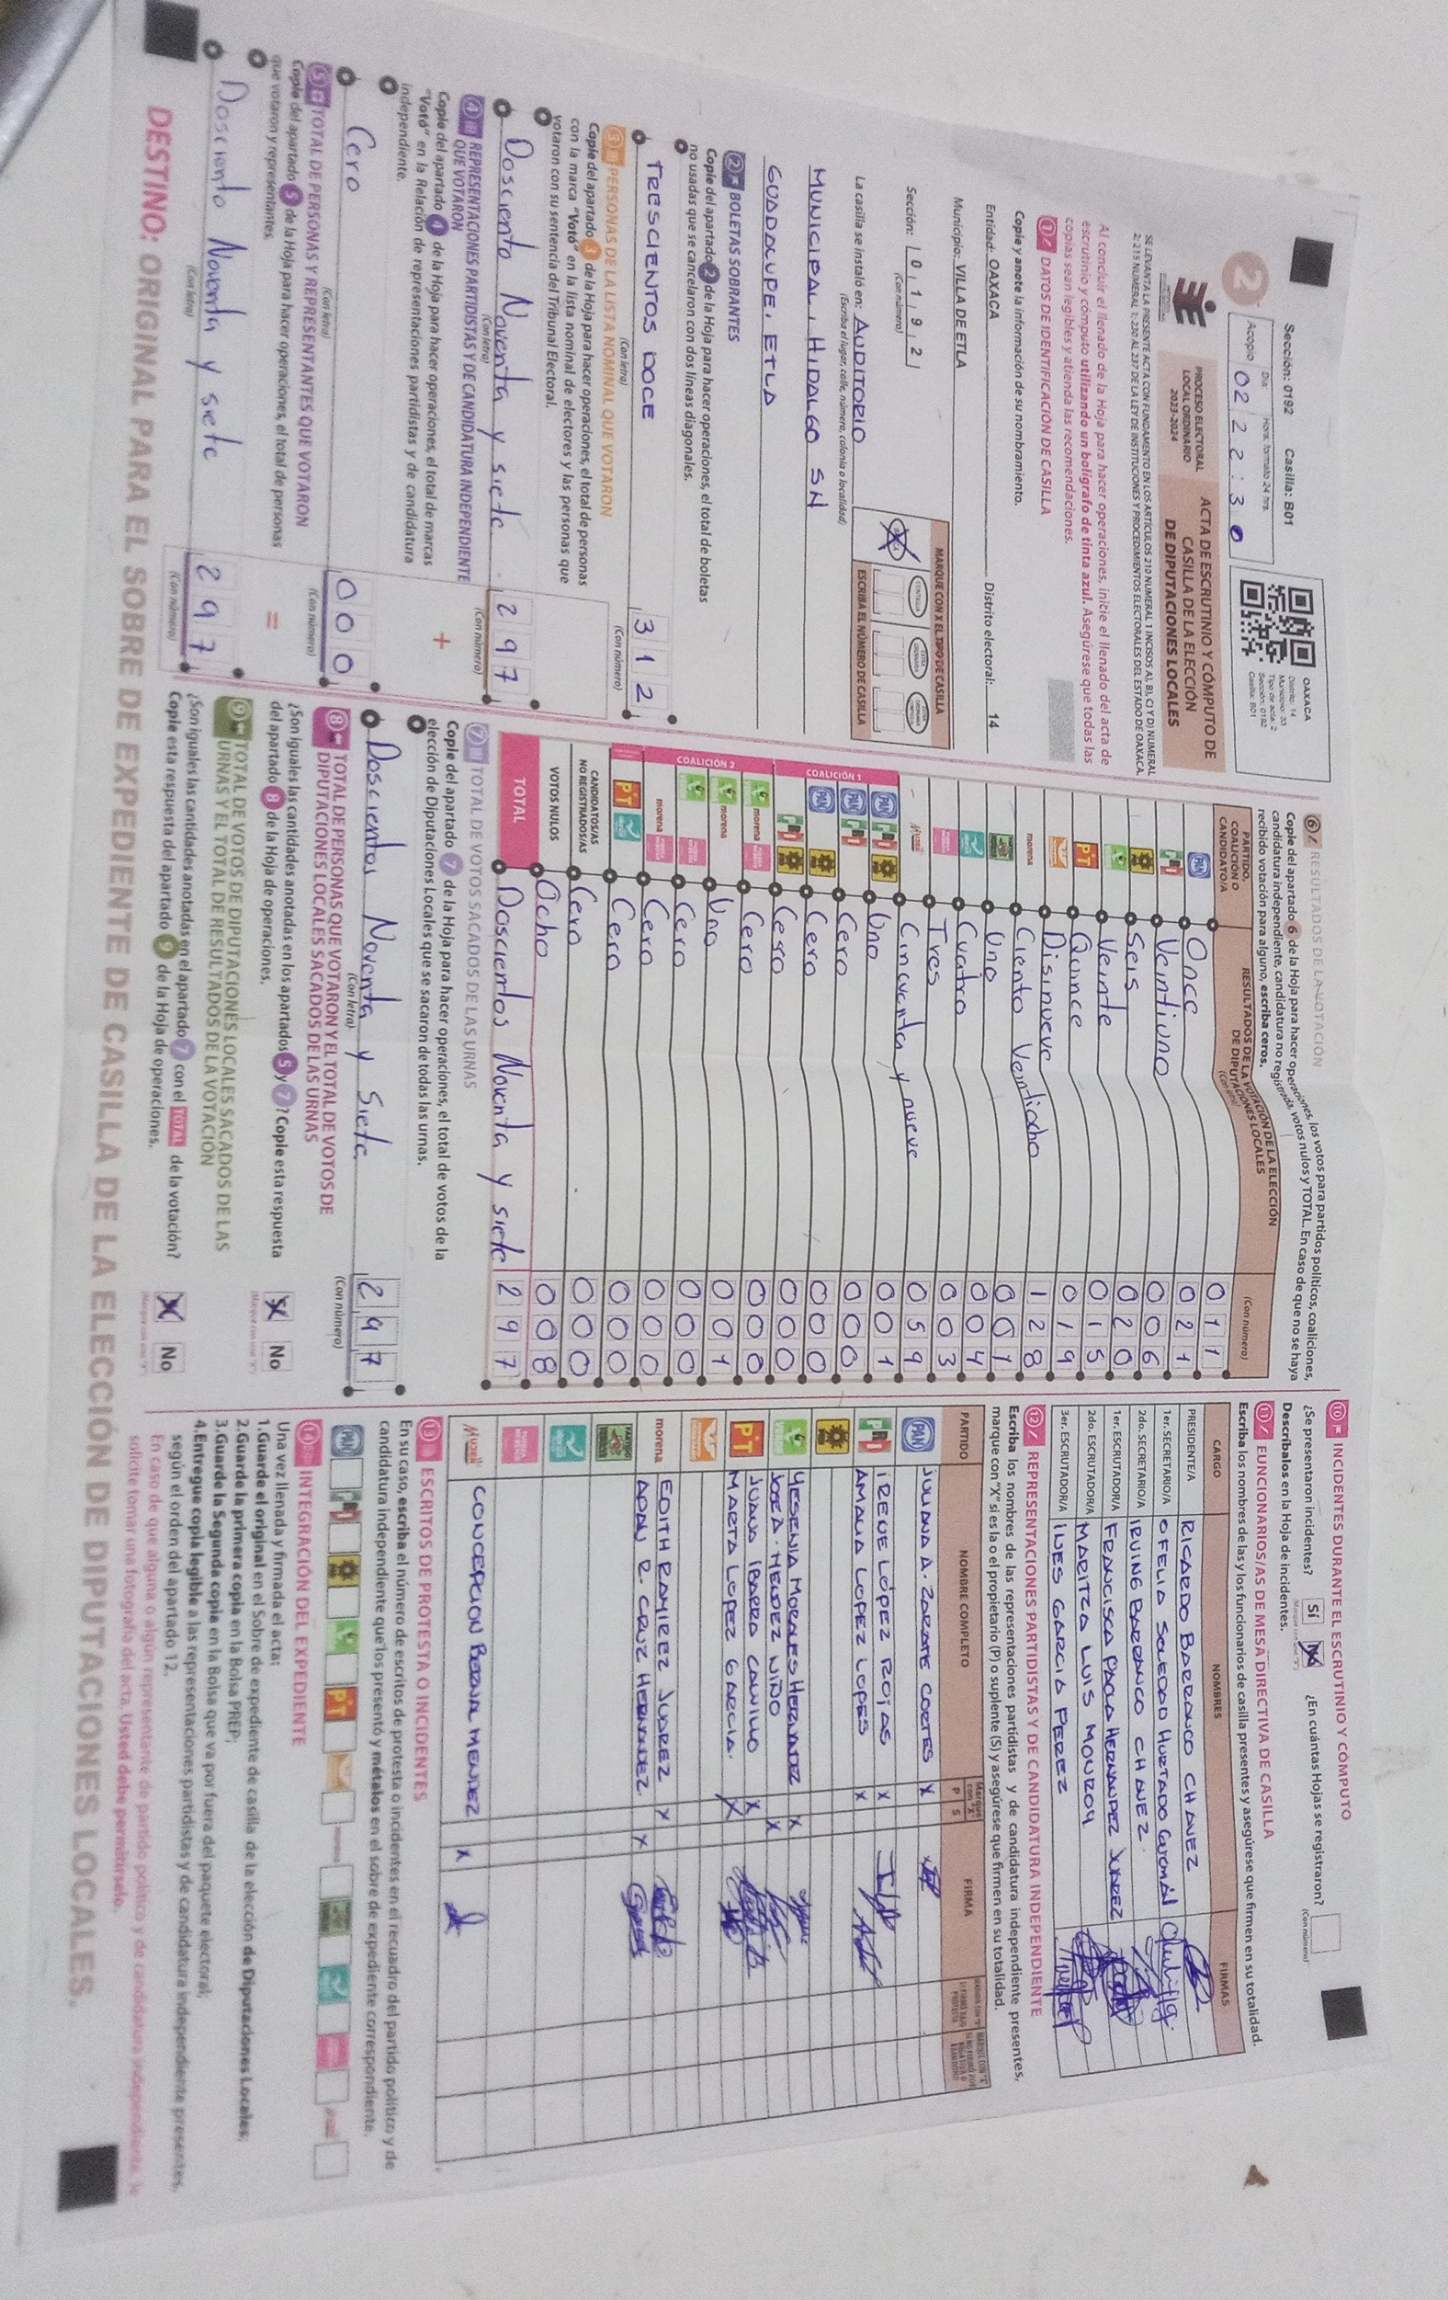 Sección: 0192 Casilla: B01
2
Día: Hora: formato 24 hrs.
Acopio 02 22:30
OAXACA
Distrito: 14
Municipio: 33
Tipo de acta: 2
Sección: 0192
Casilla: B01
PROCESO ELECTORAL
LOCAL ORDINARIO
2023-2024
ACTA DE ESCRUTINIO Y CÓMPUTO DE
CASILLA DE LA ELECCIÓN
DE DIPUTACIONES LOCALES
SE LEVANTA LA PRESENTE ACTA CON FUNDAMENTO EN LOS ARTÍCULOS 210 NUMERAL 1 INCISOS A), B), C) Y D) NUMERAL
2; 215 NUMERAL 1; 230 AL 237 DE LA LEY DE INSTITUCIONES Y PROCEDIMIENTOS ELECTORALES DEL ESTADO DE OAXACA.
Al concluir el llenado de la Hoja para hacer operaciones, inicie el llenado del acta de
escrutinio y cómputo utilizando un bolígrafo de tinta azul. Asegúrese que todas las
copias sean legibles y atienda las recomendaciones.
1 DATOS DE IDENTIFICACIÓN DE CASILLA
Copie y anote la información de su nombramiento.
Entidad: OAXACA Distrito electoral: 14
Municipio: VILLA DE ETLA
Sección: 0192
(Con número)
MARQUE CON X EL TIPO DE CASILLA
ESCRIBA EL NÚMERO DE CASILLA
La casilla se instaló en: AUDITORIO
(Escriba el lugar, calle, número, colonia o localidad)
MUNICIPAL, HIDALGO SN
GUADALUPE, ETLA
2 BOLETAS SOBRANTES
Copie del apartado 2 de la Hoja para hacer operaciones, el total de boletas
no usadas que se cancelaron con dos líneas diagonales.
TRESCIENTOS DOCE 312
(Con letra) (Con número)
3 PERSONAS DE LA LISTA NOMINAL QUE VOTARON
Copie del apartado 3 de la Hoja para hacer operaciones, el total de personas
con la marca "Votó" en la lista nominal de electores y las personas que
votaron con su sentencia del Tribunal Electoral.
Dosciento Noventa y siete 297
(Con letra) (Con número)
4 REPRESENTACIONES PARTIDISTAS Y DE CANDIDATURA INDEPENDIENTE
QUE VOTARON
Copie del apartado 4 de la Hoja para hacer operaciones, el total de marcas
"Votó" en la Relación de representaciones partidistas y de candidatura
independiente.
+
Cero 000
(Con letra) (Con número)
5 TOTAL DE PERSONAS Y REPRESENTANTES QUE VOTARON
Copie del apartado 5 de la Hoja para hacer operaciones, el total de personas
que votaron y representantes.
=
Dosciento Noventa y siete 297
(Con letra) (Con número)
6 RESULTADOS DE LA VOTACIÓN
Copie del apartado 6 de la Hoja para hacer operaciones, los votos para partidos políticos, coaliciones,
candidatura independiente, candidatura no registrada, votos nulos y TOTAL. En caso de que no se haya
recibido votación para alguno, escriba ceros.
PARTIDO, COALICIÓN O CANDIDATO/A
RESULTADOS DE LA VOTACIÓN DE LA ELECCIÓN
DE DIPUTACIONES LOCALES
(Con número)
PAN Once 011
PRI Veintiuno 021
Seis 006
Veinte 020
PT Quince 015
Disinueve 019
morena Ciento Veintiocho 128
Uno 001
Cuatro 004
Tres 003
Cincuenta y nueve 059
COALICIÓN 1
PAN PRI Uno 001
PAN PRI Cero 000
PAN Cero 000
PRI Cero 000
COALICIÓN 2
morena Cero 000
morena Uno 001
Cero 000
morena Cero 000
PT Cero 000
CANDIDATOS/AS
NO REGISTRADOS/AS Cero 000
VOTOS NULOS Ocho 008
TOTAL Doscientos Noventa y siete 297
7 TOTAL DE VOTOS SACADOS DE LAS URNAS
Copie del apartado 7 de la Hoja para hacer operaciones, el total de votos de la
elección de Diputaciones Locales que se sacaron de todas las urnas.
Doscientos Noventa y Siete 297
(Con letra) (Con número)
8 TOTAL DE PERSONAS QUE VOTARON Y EL TOTAL DE VOTOS DE
DIPUTACIONES LOCALES SACADOS DE LAS URNAS
¿Son iguales las cantidades anotadas en los apartados 5 y 7? Copie esta respuesta
del apartado 8 de la Hoja de operaciones.
X No
9 TOTAL DE VOTOS DE DIPUTACIONES LOCALES SACADOS DE LAS
URNAS Y EL TOTAL DE RESULTADOS DE LA VOTACIÓN
¿Son iguales las cantidades anotadas en el apartado 7 con el TOTAL de la votación?
Copie esta respuesta del apartado 9 de la Hoja de operaciones.
X No
10 INCIDENTES DURANTE EL ESCRUTINIO Y CÓMPUTO
¿Se presentaron incidentes? Sí No ¿En cuántas Hojas se registraron?
(Con número)
Descríbalos en la Hoja de incidentes.
11 FUNCIONARIOS/AS DE MESA DIRECTIVA DE CASILLA
Escriba los nombres de las y los funcionarios de casilla presentes y asegúrese que firmen en su totalidad.
CARGO NOMBRES FIRMAS
PRESIDENTE/A RICARDO BARRANCO CHAVEZ
1er. SECRETARIO/A OFELIA SOLEDAD HURTADO GUZMAN
2do. SECRETARIO/A IRVING BARRANCO CHAVEZ
1er. ESCRUTADOR/A FRANCISCA PAOLA HERNANDEZ JUAREZ
2do. ESCRUTADOR/A MARITZA LUIS MONROY
3er. ESCRUTADOR/A INES GARCIA PEREZ
12 REPRESENTACIONES PARTIDISTAS Y DE CANDIDATURA INDEPENDIENTE
Escriba los nombres de las representaciones partidistas y de candidatura independiente presentes,
marque con "X" si es la o el propietario (P) o suplente (S) y asegúrese que firmen en su totalidad.
PARTIDO NOMBRE COMPLETO P S FIRMA
PAN JULIANA A. ZARATE CORTES X
PRI IRENE LÓPEZ ROJAS X
AMALIA LOPEZ LOPES X
YESENIA MORALES HERNANDEZ X
JOSEA. MENDEZ NIÑO X
PT JUANA IBARRA CALVILLO X
MARTA LOPEZ GARCIA. X
morena EDITH RAMIREZ JUAREZ X
ADAN R. CRUZ HERNANDEZ X
CONCEPCION BERNAL MENDEZ X
13 ESCRITOS DE PROTESTA O INCIDENTES
En su caso, escriba el número de escritos de protesta o incidentes en el recuadro del partido político y de
candidatura independiente que los presentó y métalos en el sobre de expediente correspondiente.
PAN PRI PT morena
14 INTEGRACIÓN DEL EXPEDIENTE
Una vez llenada y firmada el acta:
1.Guarde el original en el Sobre de expediente de casilla de la elección de Diputaciones Locales;
2.Guarde la primera copia en la Bolsa PREP;
3.Guarde la Segunda copia en la Bolsa que va por fuera del paquete electoral;
4.Entregue copia legible a las representaciones partidistas y de candidatura independiente presentes,
según el orden del apartado 12.
En caso de que alguna o algún representante de partido político y de candidatura independiente, le
solicite tomar una fotografía del acta, Usted debe permitírselo.
DESTINO: ORIGINAL PARA EL SOBRE DE EXPEDIENTE DE CASILLA DE LA ELECCIÓN DE DIPUTACIONES LOCALES.